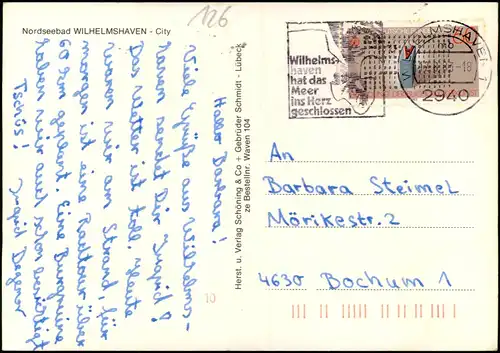 126
Nordseebad WILHELMSHAVEN - City
Hallo Barbara!
Viele Grüße aus Wilhelms-
haven sendet Dir Ingrid!
Das Wetter ist toll. Heute
waren wir am Strand, für
morgen ist eine Radtour über
60 km geplant. Eine Burgruine
haben wir auch schon besichtigt
Tschüs! Ingrid Degener
10
Herst. u. Verlag Schöning & Co + Gebrüder Schmidt - Lübeck
ze Bestellnr. Waven 104
Wilhelms-
haven
hat das
Meer
ins Herz
geschlossen
WILHELMSHAVEN 1
-18
2940
An
Barbara Steimel
Mörikestr. 2
4630 Bochum 1